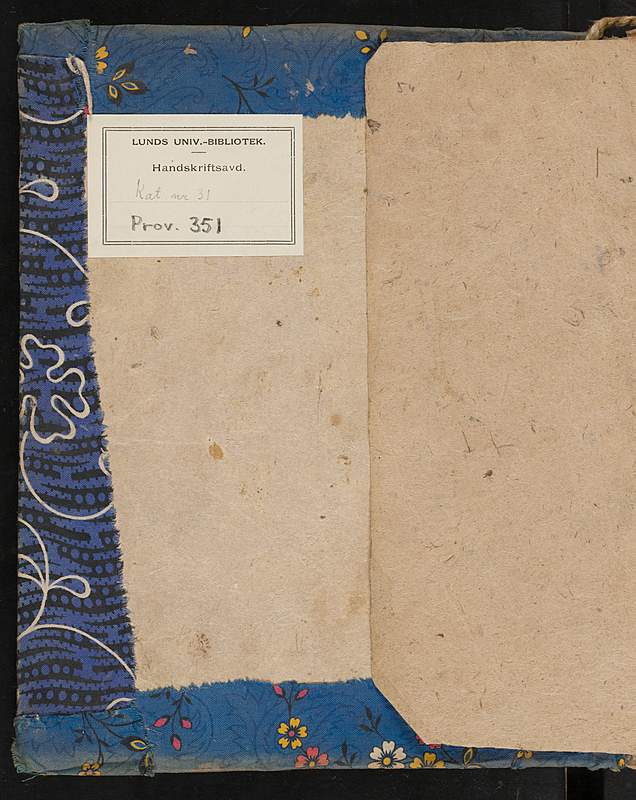 LUNDS UNIV.-BIBLIOTEK.
Handskriftsavd.
Kat nr 31
Prov. 351
54